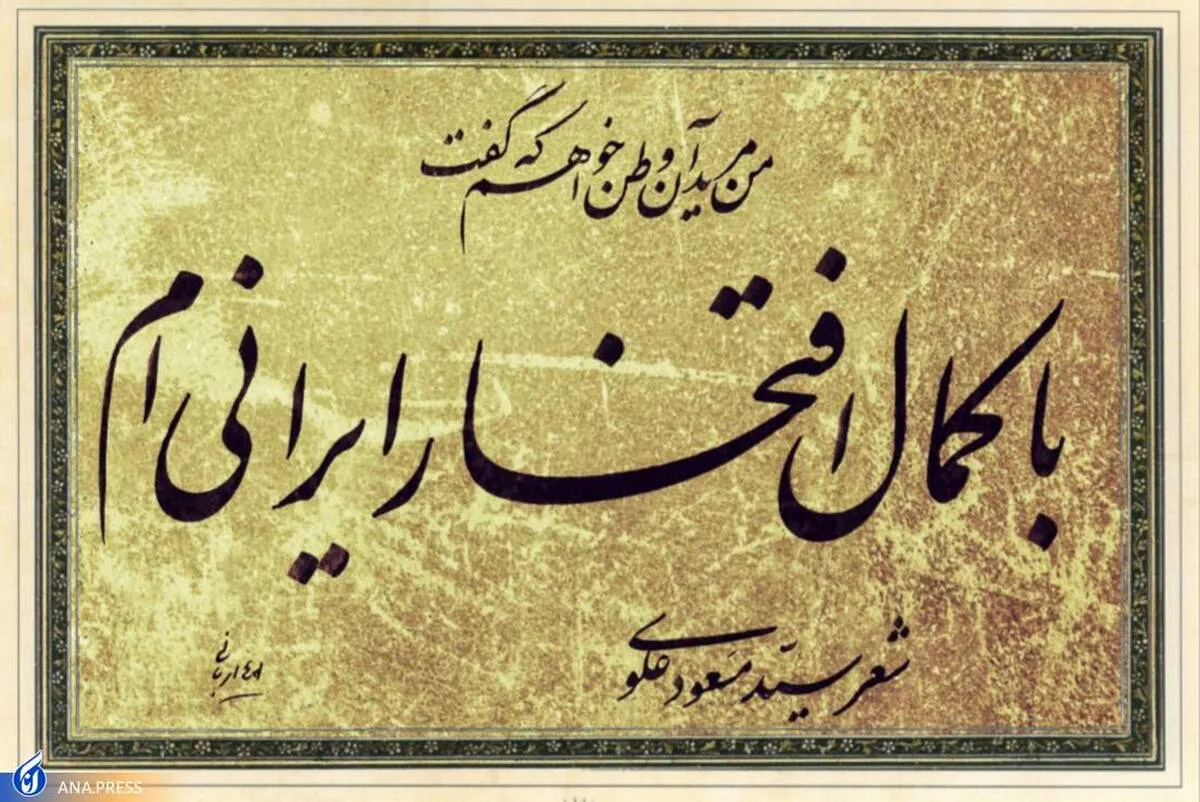 من مرید آن وطن خواهم که گفت
با کمال افتخار ایرانی ام
شعر سیّد مسَعود علَوی
ANA.PRESS